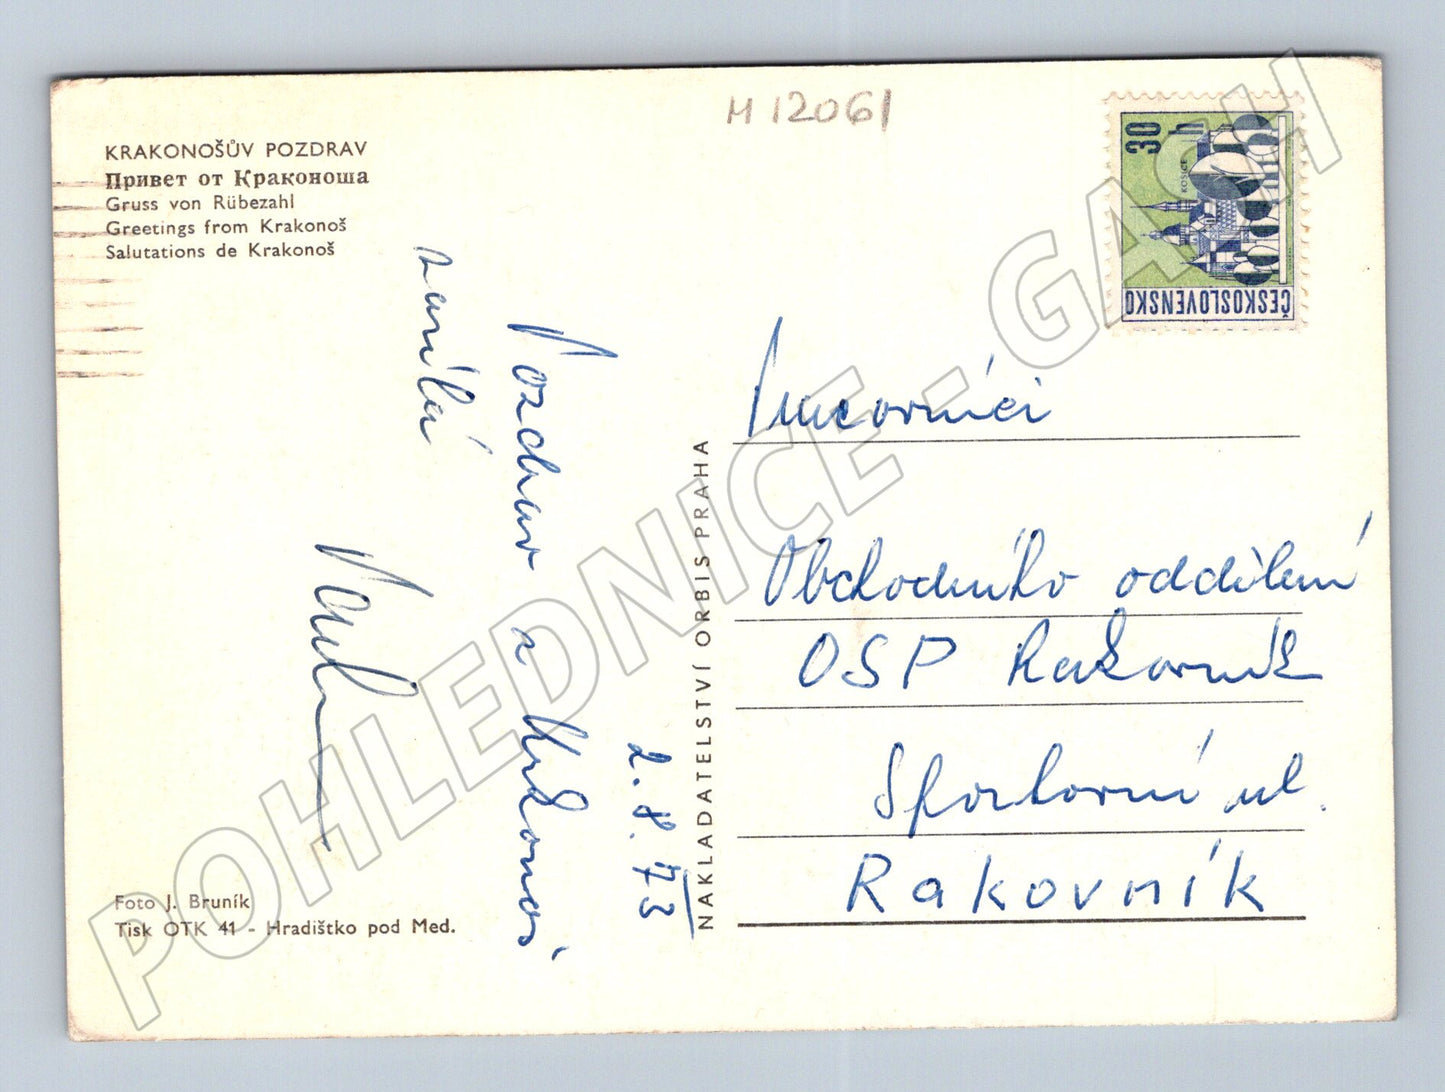 M 12061
KRAKONOŠŮV POZDRAV
Привет от Кракoноша
Gruss von Rübezahl
Greetings from Krakonoš
Salutations de Krakonoš
30
h
KOŠICE
ČESKOSLOVENSKO
Pozdrav z Krkonoš
2. 8. 73
NAKLADATELSTVÍ ORBIS PRAHA
Pracovníci
Obchodního oddělení
OSP Rakovník
Sportovní ul.
Rakovník
Foto J. Bruník
Tisk OTK 41 - Hradištko pod Med.
POHLEDNICE - GASH